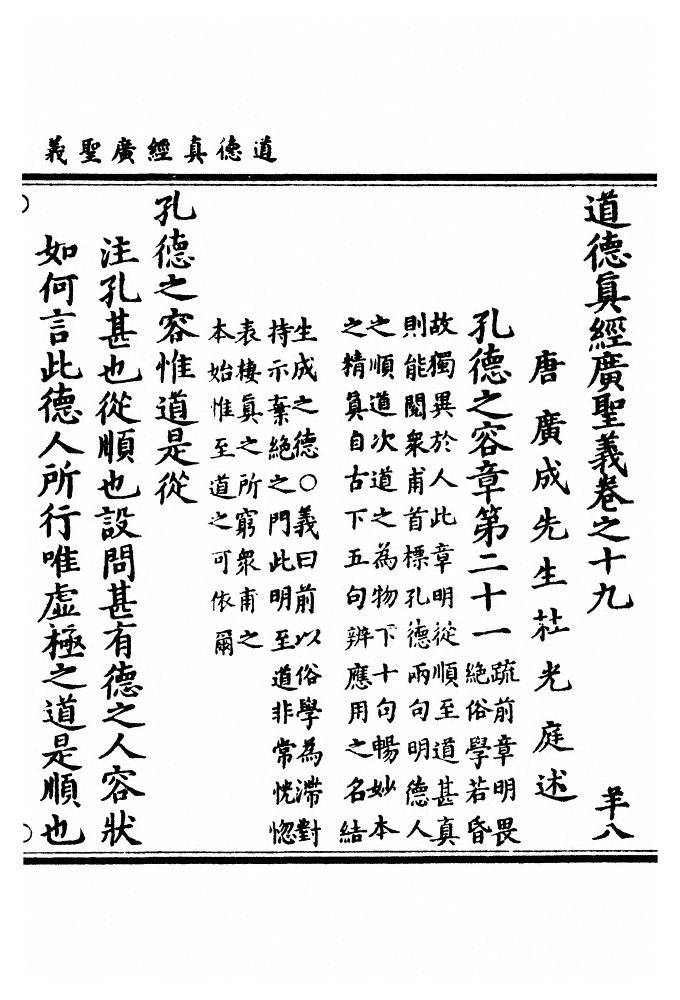 道德真經廣聖義
道德眞經廣聖義卷之十九 羊八
唐廣成先生杜光庭述
孔德之容章第二十一
疏前章明畏
絕俗學若昏
故獨異於人此章明從順至道甚真
則能閱衆甫首標孔德兩句明德人
之順道次道之為物下十句暢妙本
之精眞自古下五句辨應用之名結
生成之德○義曰前以俗學為滯對
持示棄絕之門此明至道非常恍惚
表棲真之所窮衆甫之
本始惟至道之可依爾
孔德之容惟道是從
注孔甚也從順也設問甚有德之人容狀
如何言此德人所行唯虛極之道是順也